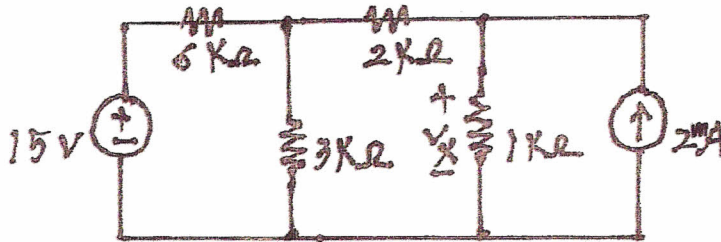 6KΩ 2KΩ
15V + - 3KΩ + Vx - 1KΩ ↑ 2mA